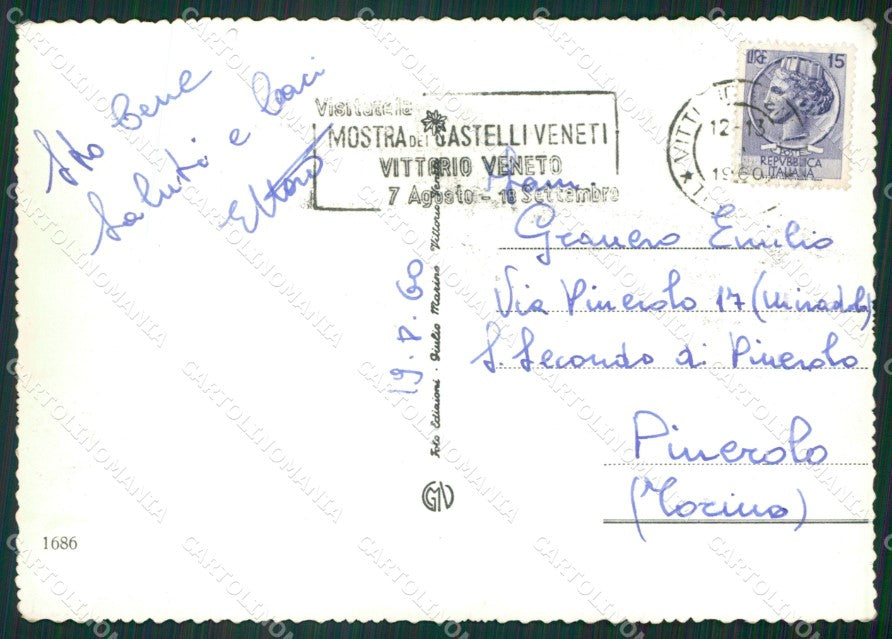 Sto bene
Saluti e baci
Ettore
Visitate la
MOSTRA DEI CASTELLI VENETI
VITTORIO VENETO
7 Agosto - 18 Settembre
12-13
LIRE 15
REPVBBLICA
ITALIANA
Fam
Granero Emilio
Via Pinerolo 17 (Miradolo)
S. Secondo di Pinerolo
Pinerolo
(Torino)
19.8.60
Foto Edizioni - Giulio Marino Vittorio Veneto
GMV
1686
CARTOLINOMANIA